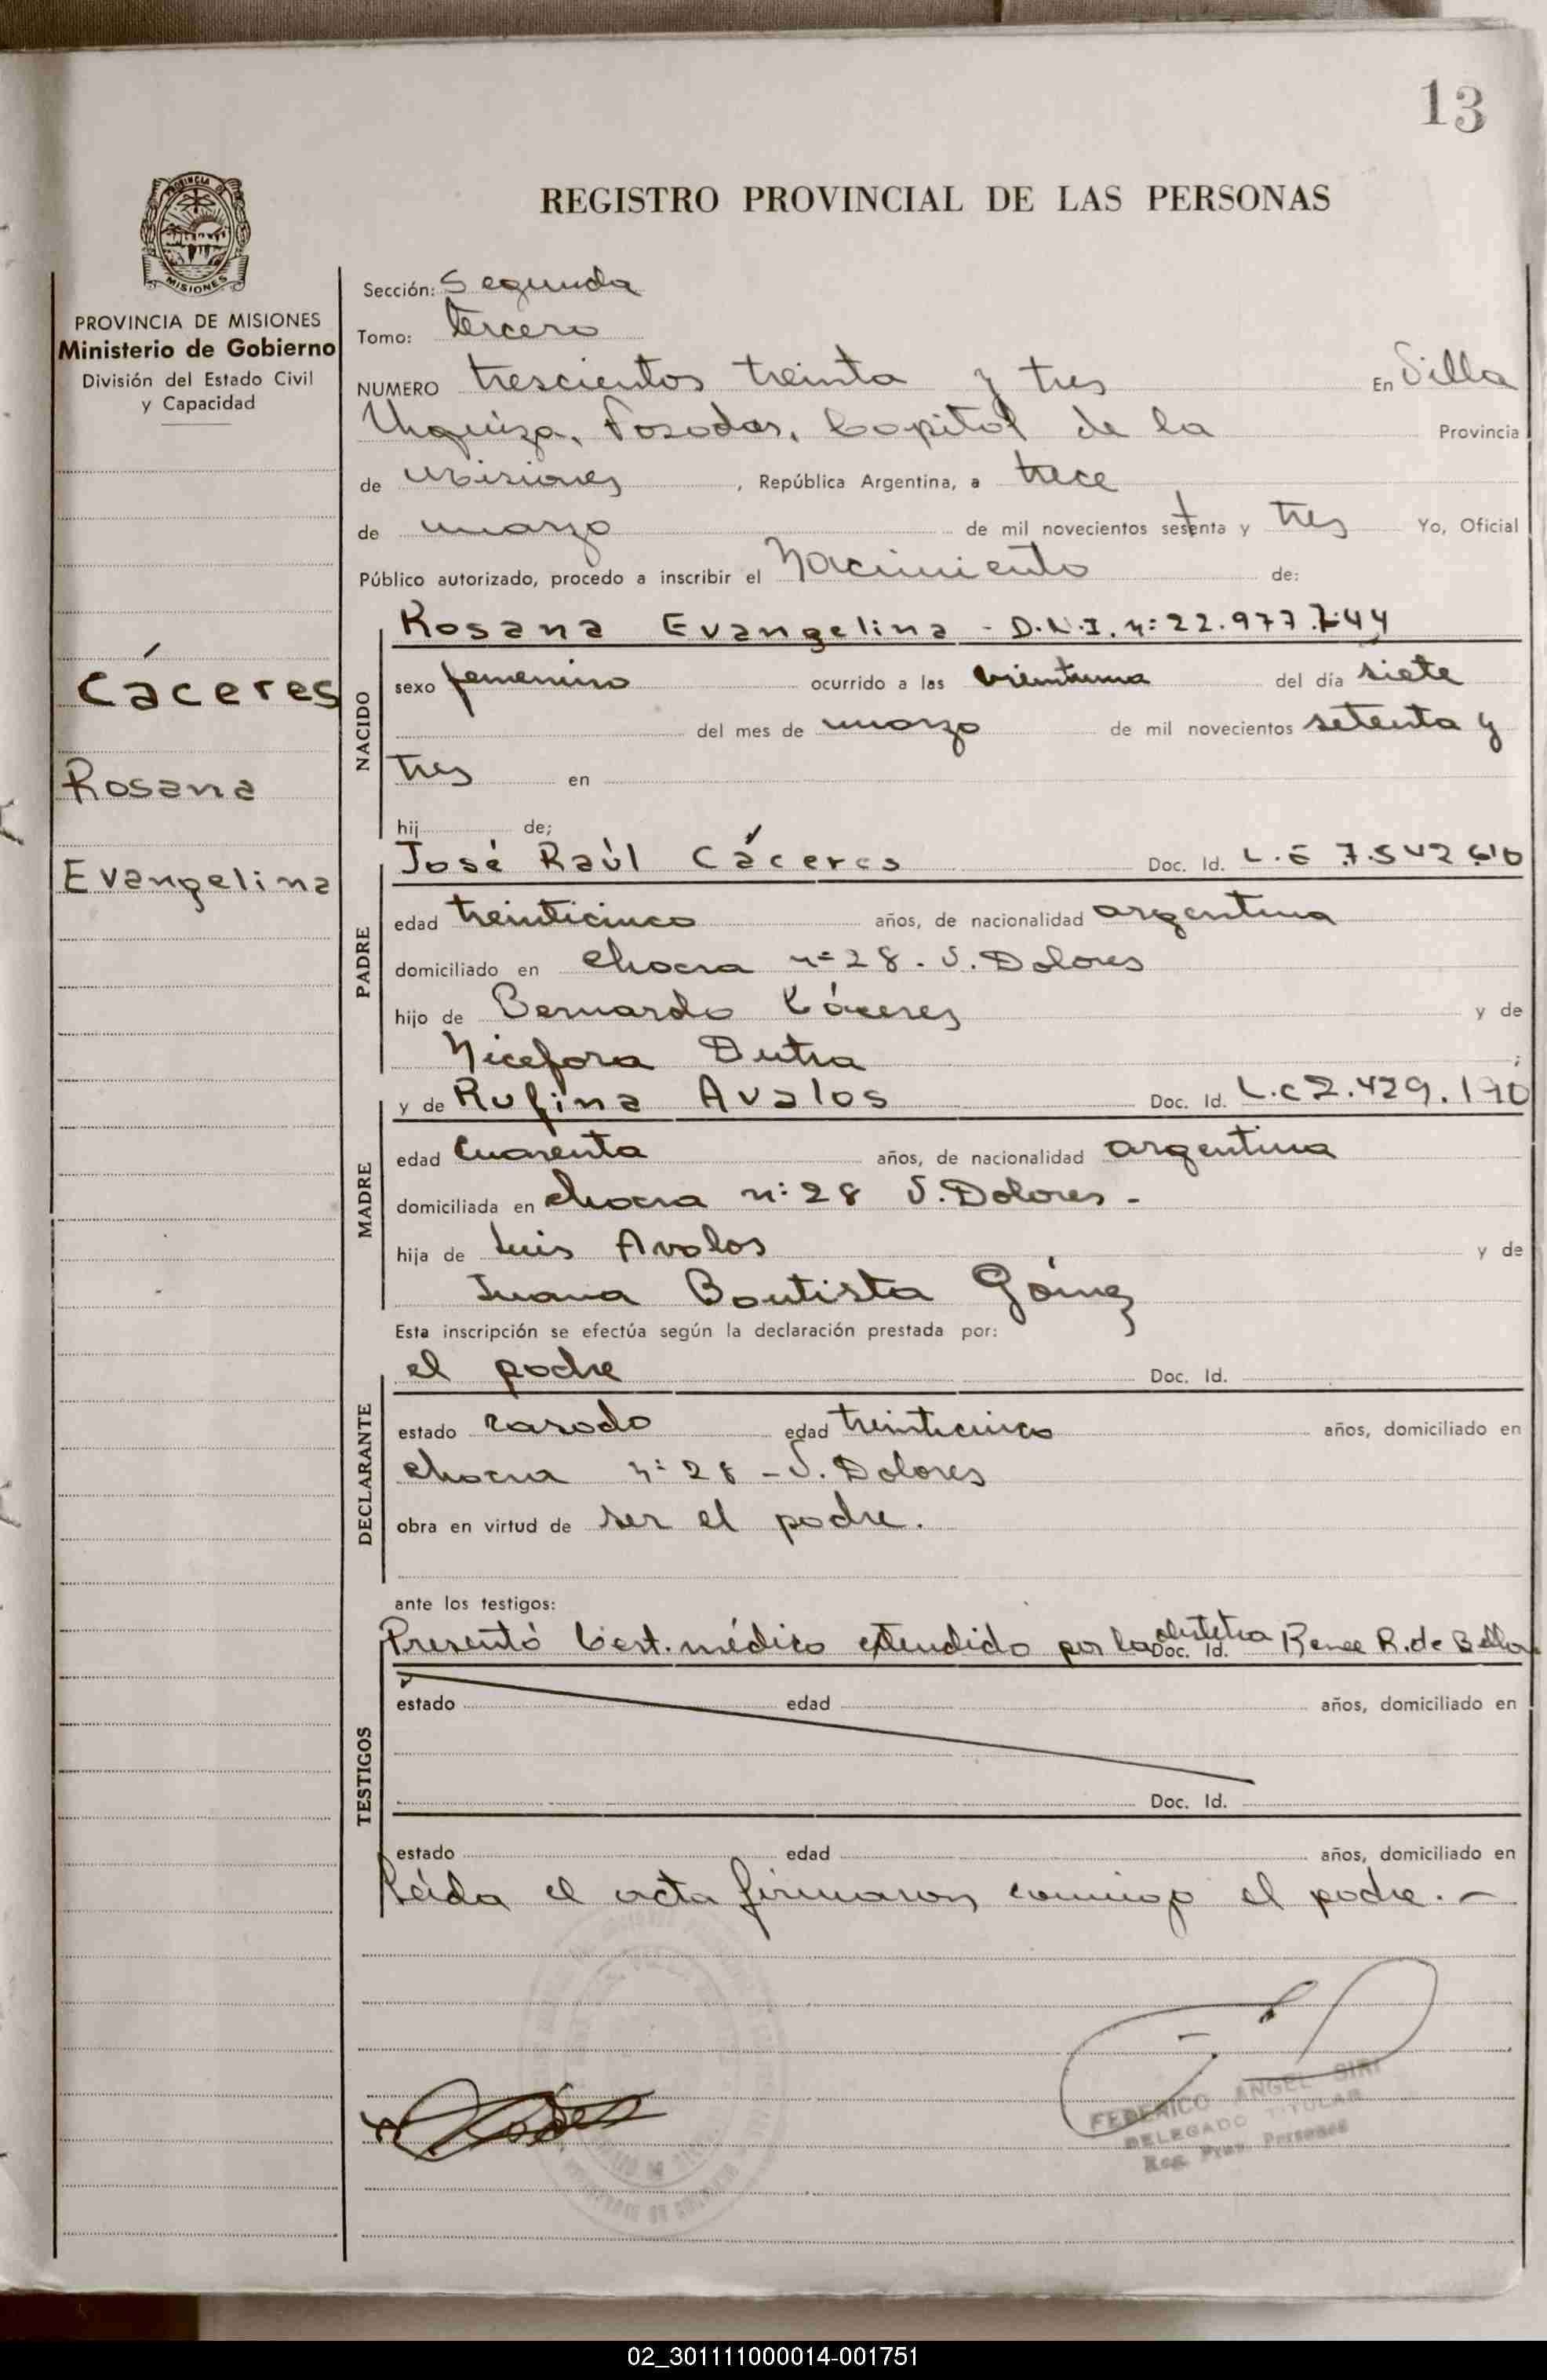 13
REGISTRO PROVINCIAL DE LAS PERSONAS
PROVINCIA DE MISIONES
Ministerio de Gobierno
División del Estado Civil
y Capacidad
Cáceres
Rosana
Evangelina
Sección: Segunda
Tomo: tercero
NUMERO trescientos treinta y tres En Villa
Urquiza, Posadas, Capital de la Provincia
de Misiones, República Argentina, a trece
de marzo de mil novecientos setenta y tres Yo, Oficial
Público autorizado, procedo a inscribir el Nacimiento de:
NACIDO
Rosana Evangelina - D.N.I. n: 22.977.744
sexo femenino ocurrido a las veintiuna del día siete
del mes de marzo de mil novecientos setenta y
tres en
hij de;
PADRE
José Raúl Cáceres Doc. Id. L.E 7.542.610
edad treinticinco años, de nacionalidad argentina
domiciliado en chacra n= 28. V. Dolores
hijo de Bernardo Cáceres y de
Nicefora Dutra ;
MADRE
y de Rufina Avalos Doc. Id. L.C 2.429.190
edad Cuarenta años, de nacionalidad argentina
domiciliada en chacra n: 28 V. Dolores -
hija de Luis Avalos y de
Juana Bautista Gómez
Esta inscripción se efectúa según la declaración prestada por:
DECLARANTE
el padre Doc. Id.
estado casado edad treinticinco años, domiciliado en
chacra n: 28 - V. Dolores
obra en virtud de ser el padre.
TESTIGOS
ante los testigos:
Presentó Cert. médico extendido por la obstetra Doc. Id. Renee R. de Bello
estado edad años, domiciliado en
Doc. Id.
estado edad años, domiciliado en
Leída el acta firmaron conmigo el padre. -
FEDERICO ANGEL SIRI
DELEGADO TITULAR
Reg. Prov. Personas
02_301111000014-001751